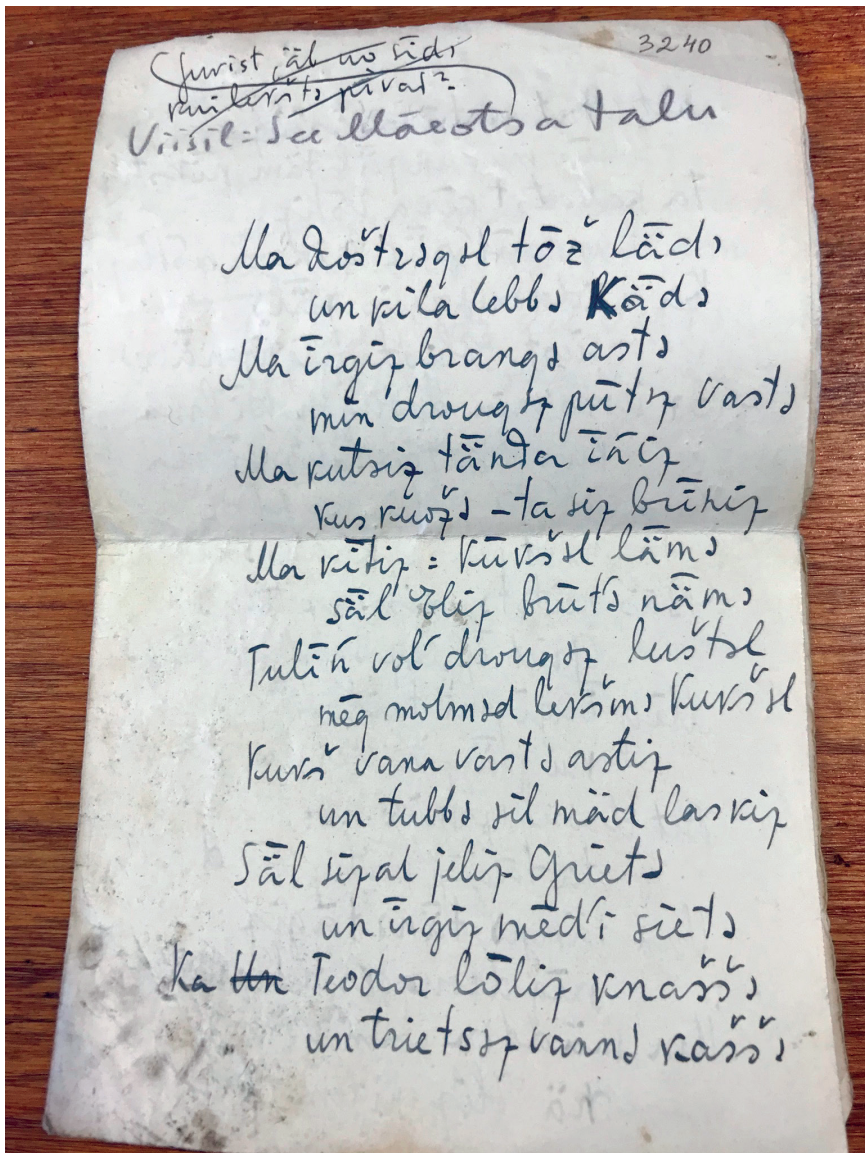 3240
Viisil = See Mäeotsa talu
Ma Koštrəgəl tōž lǟdə
un kila lebbə Kǟdə
Ma īrgiz brangə astə
min drougəz pūtəz vastə
Ma kutsiz tǟnda īńiz
kus kuožə – ta siz brīniz
Ma kītiz = Kūkšəl lǟmə
sǟl ēliz brūtə nǟmə
Tulīń vol' drougəz luštəl
mēg molməd lekšmə Kukšəl
Kukš vana vastə astiz
un tubbə sil mäd laskiz
Sǟl sizal jeliz Grietə
un īrgiz mēd'i sietə
Ka Un Teodor lōliz knaššə
un trietsəz vannə kaššə